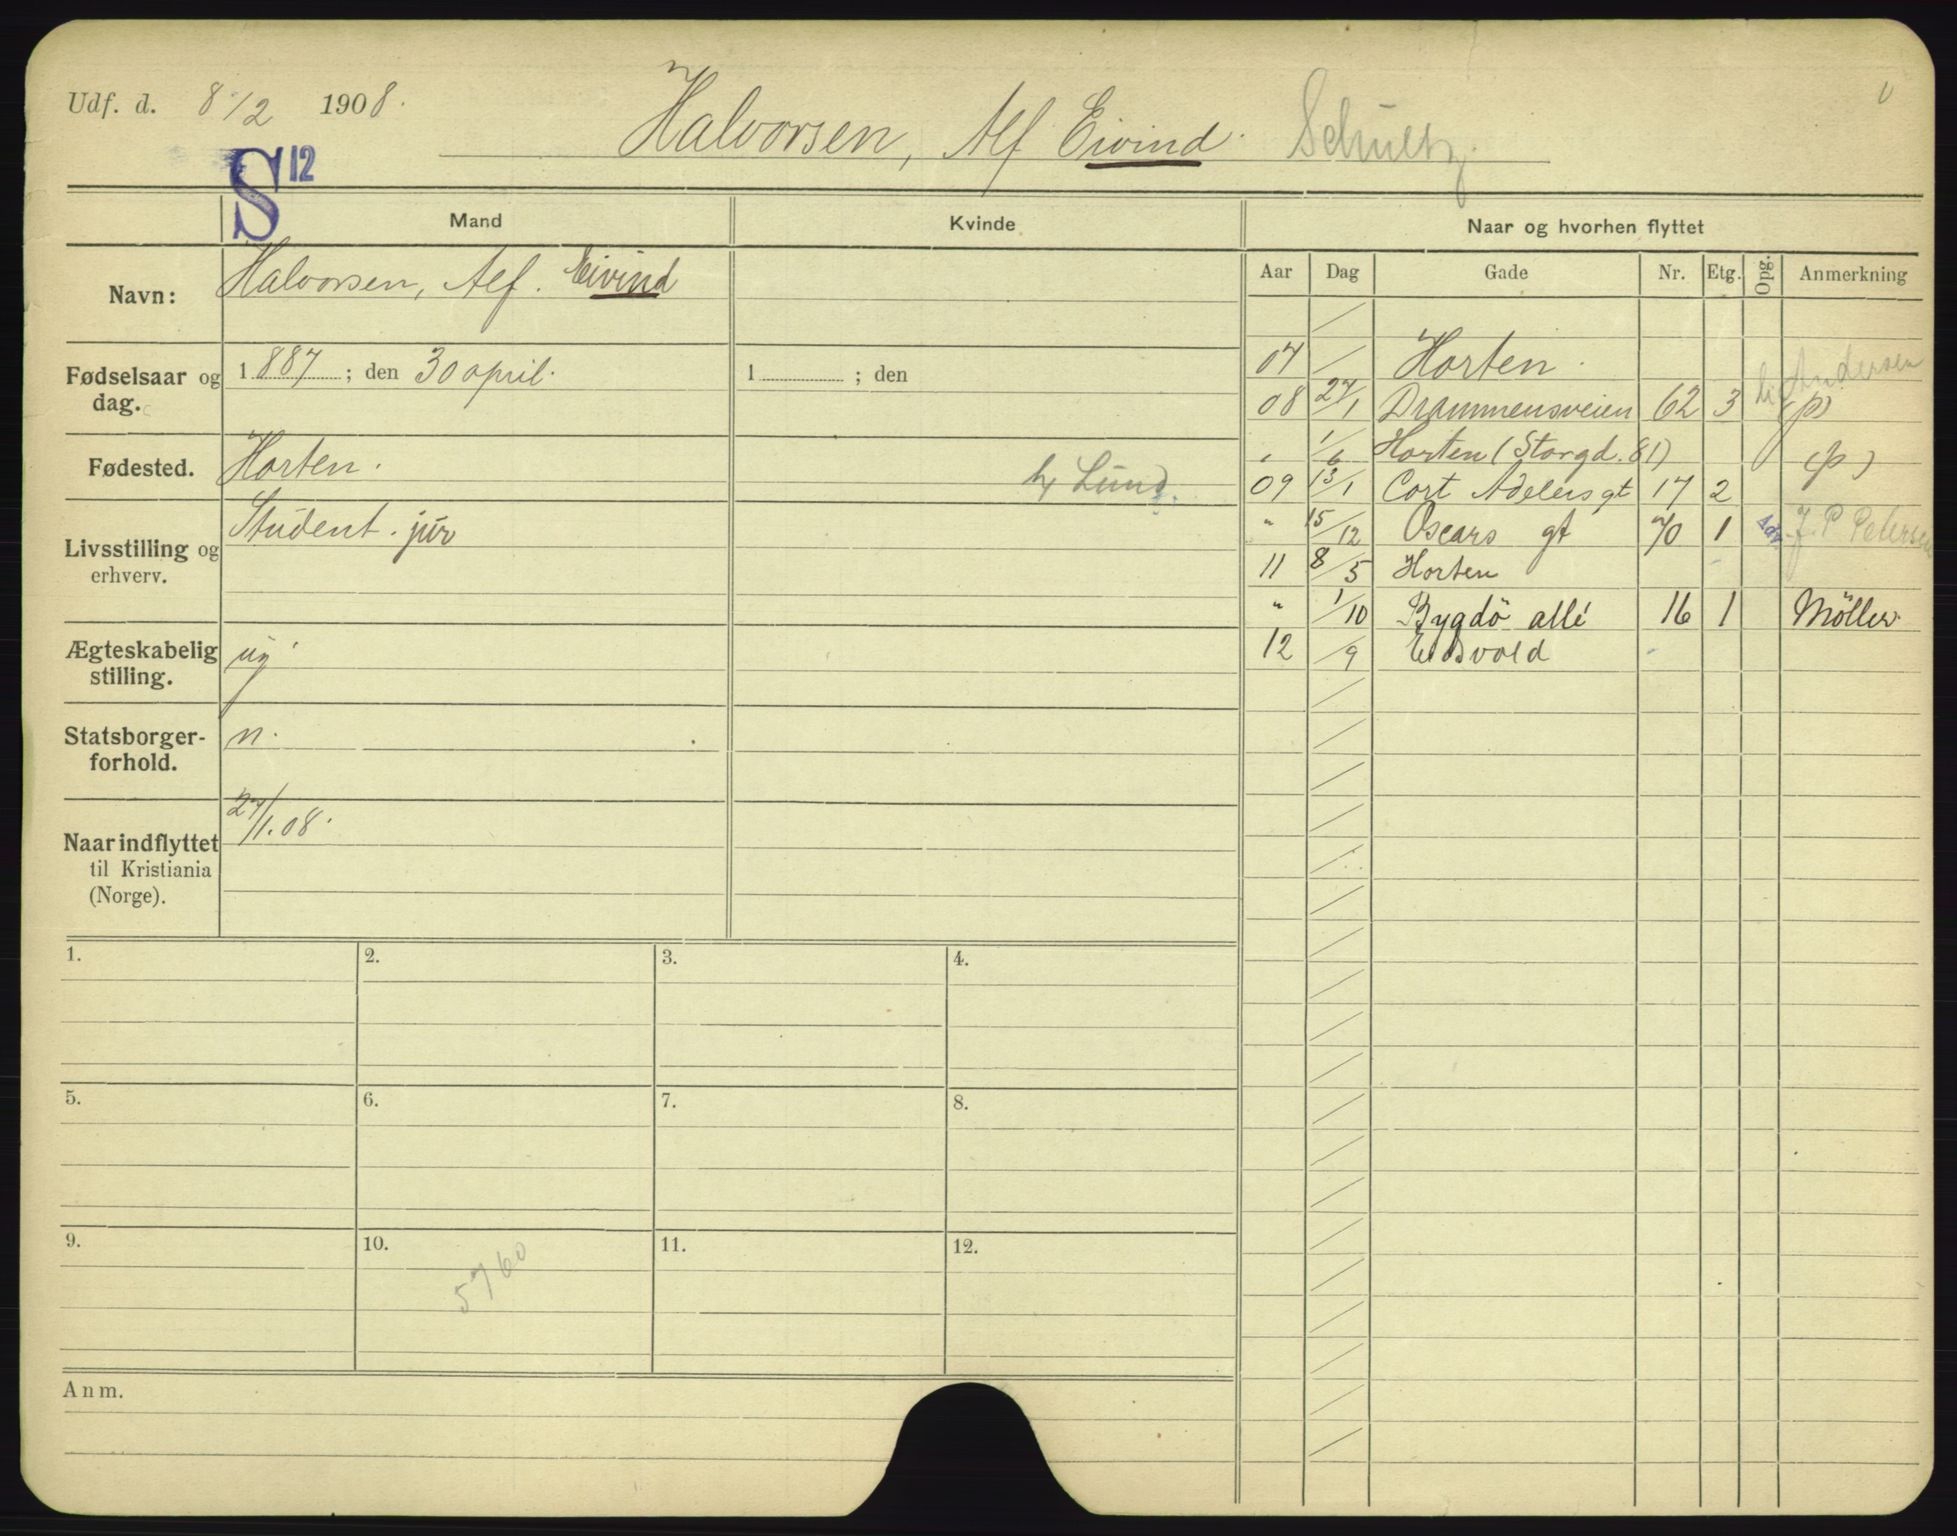 Udf. d. 8/2 1908.
Halvorsen, Alf Eivind. Schultz.
S 12
Mand Kvinde Naar og hvorhen flyttet
Navn: Halvorsen, Alf. Eivind
Fødselsaar og dag. 1887; den 30 april. 1 ; den
Fødested. Horten.
hj Lund.
Livsstilling og erhverv. Student. jur
Ægteskabelig stilling. ug
Statsborgerforhold. n.
Naar indflyttet til Kristiania (Norge). 27/1.08.
Aar Dag Gade Nr. Etg. Opg. Anmerkning
07 / Horten.
08 27/1 Drammensveien 62 3 hj Andersen (p)
" 1/6 Horten (Storgd. 81) (p)
09 13/1 Cort Adelers gt 17 2
" 15/12 Oscars gt 70 1 Adv. J. P Petersen
11 8/5 Horten
" 1/10 Bygdö allé 16 1 Möller.
12 /9 Eidsvold
1. 2. 3. 4.
5. 6. 7. 8.
9. 10. 11. 12.
5760
Anm.